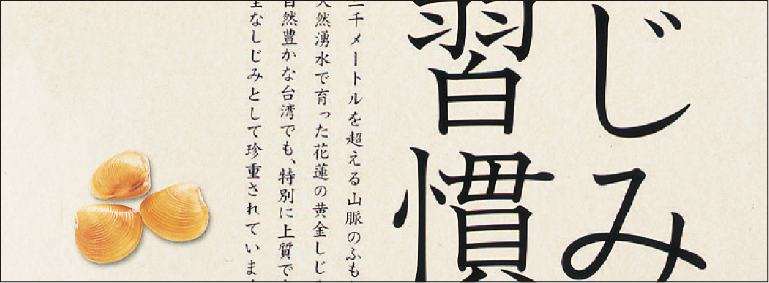 じみ
習慣
二千メートルを超える山脈のふも
天然湧水で育った花蓮の黄金しじ
自然豊かな台湾でも、特別に上質で
なしじみとして珍重されていま